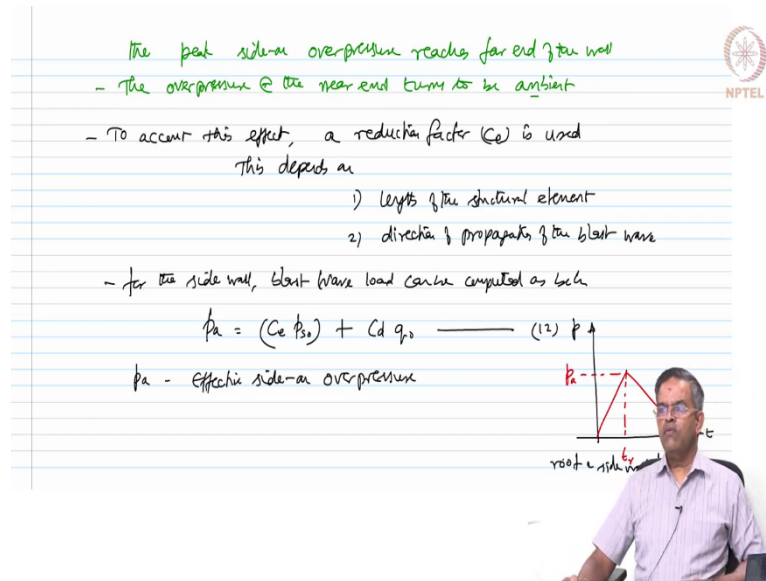 the peak side-on overpressure reaches far end of the wall
- The overpressure @ the near end turns to be ambient
NPTEL
- To account this effect, a reduction factor (Ce) is used
This depends on
1) length of the structural element
2) direction of propagation of the blast wave
- for the side wall, blast wave load can be computed as below
pa = (Ce pso) + Cd qo ——— (12)
p
pa - Effective side-on overpressure
pa
t
tr
roof & side